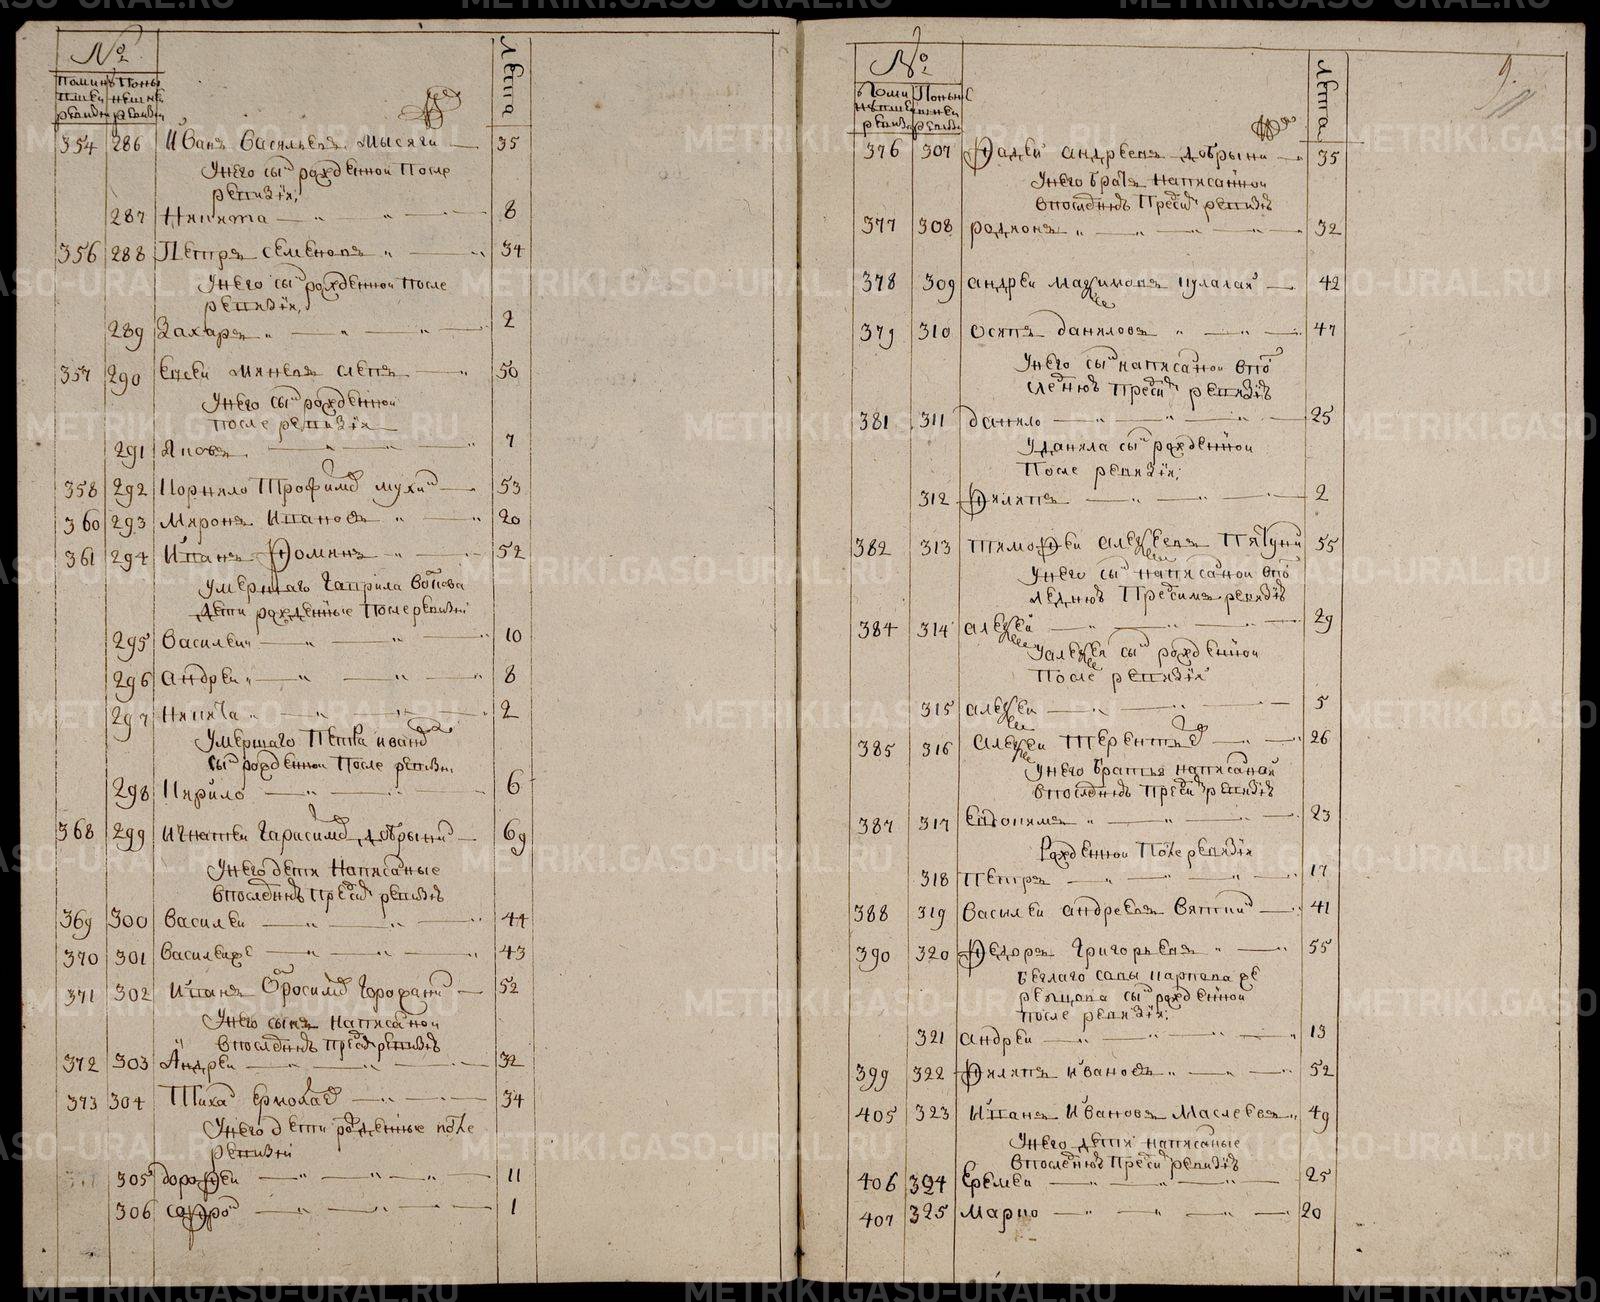 №
Лѣта
354 286 Иванъ Васильевъ Мысягин 35
У него сынъ рожденной после
ревизiи,
287 Никита 8
356 288 Петръ Семеновъ 34
У него сынъ рожденной после
ревизiи,
289 Захаръ 2
357 290 50
У него сынъ рожденной
после ревизiи
291 Яковъ 7
358 292 Корнило Трофимов Мухин 53
360 293 Миронъ Ивановъ 20
361 294 Иванъ Фоминъ 52
Умершаго Гаврила
дети рожденные после ревизiи
295 Василеи 10
296 Андреи 8
297 Никита 2
Умершаго Петра Иванов
сынъ рожденнои после ревизiи
298 Кирило 6
368 299 Игнатеи Гарасимов Добрынин 69
У него дети написаные
в последнюю пред сим ревизiю
369 300 Василеи 44
370 301 Василеи же 43
371 302 Иванъ 52
У него сынъ написаной
в последнюю пред сим ревизiю
372 303 Андреи 32
373 304 Тихан Ермолаев 34
У него дети рожденные после
ревизiи
305 Дорофеи 11
306 Софрон 1
№
Лѣта
376 307 Фадеи Андреевъ Добрынин 35
У него братъ написанной
в последнюю пред сим ревизiю
377 308 Родионъ 32
378 309 Андреи Максимовъ 42
379 310 Осипъ Даниловъ 47
У него сынъ написаной в по
следнюю пред сим ревизiю
381 311 Данило 25
У Данила сынъ рожденной
после ревизiи;
312 Филипъ 2
382 313 Тимофеи Алексеевъ 55
У него сынъ написаной в пос
леднюю пред симъ ревизiю
384 314 Алексеи 29
У Алексея сынъ рожденной
после ревизiи
315 Алексеи 5
385 316 Алексеи Терентьев 26
У него братья написаной
в последнюю пред сим ревизiю
387 317 Евдокимъ 23
Рожденнои после ревизiи
318 Петръ 17
388 319 Василеи Андреевъ Вяткин 41
390 320 Федоръ Григорьевъ 55
Беглаго Савы Карпова же
сынъ рожденной
после ревизiи;
321 Андреи 13
399 322 Филипъ Ивановъ 52
405 323 Иванъ Ивановъ Маслеевъ 49
У него дети написаные
в последнюю пред сим ревизiю
406 324 Еремеи 25
407 325 Марко 20
METRIKI.GASO-URAL.RU